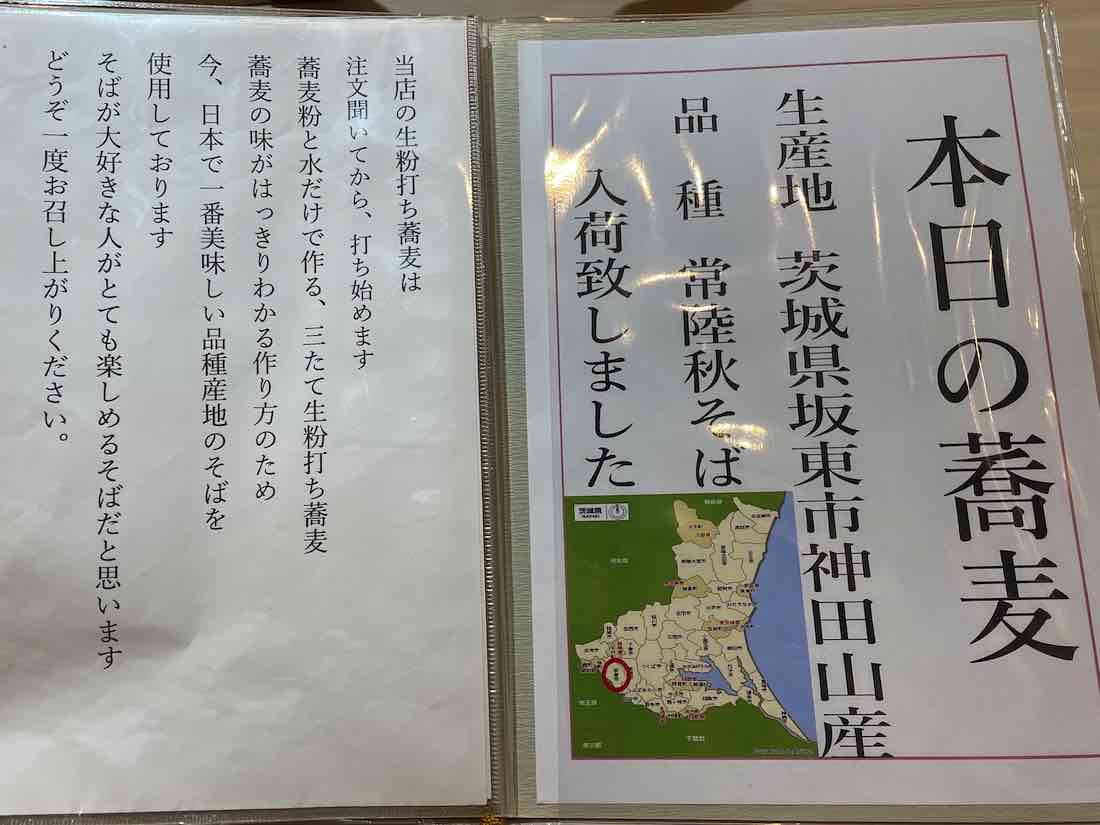 本日の蕎麦
生産地 茨城県坂東市神田山産
品種 常陸秋そば
入荷致しました
茨城県
当店の生粉打ち蕎麦は
注文聞いてから、打ち始めます
蕎麦粉と水だけで作る、三たて生粉打ち蕎麦
蕎麦の味がはっきりわかる作り方のため
今、日本で一番美味しい品種産地のそばを
使用しております
そばが大好きな人がとても楽しめるそばだと思います
どうぞ一度お召し上がりください。